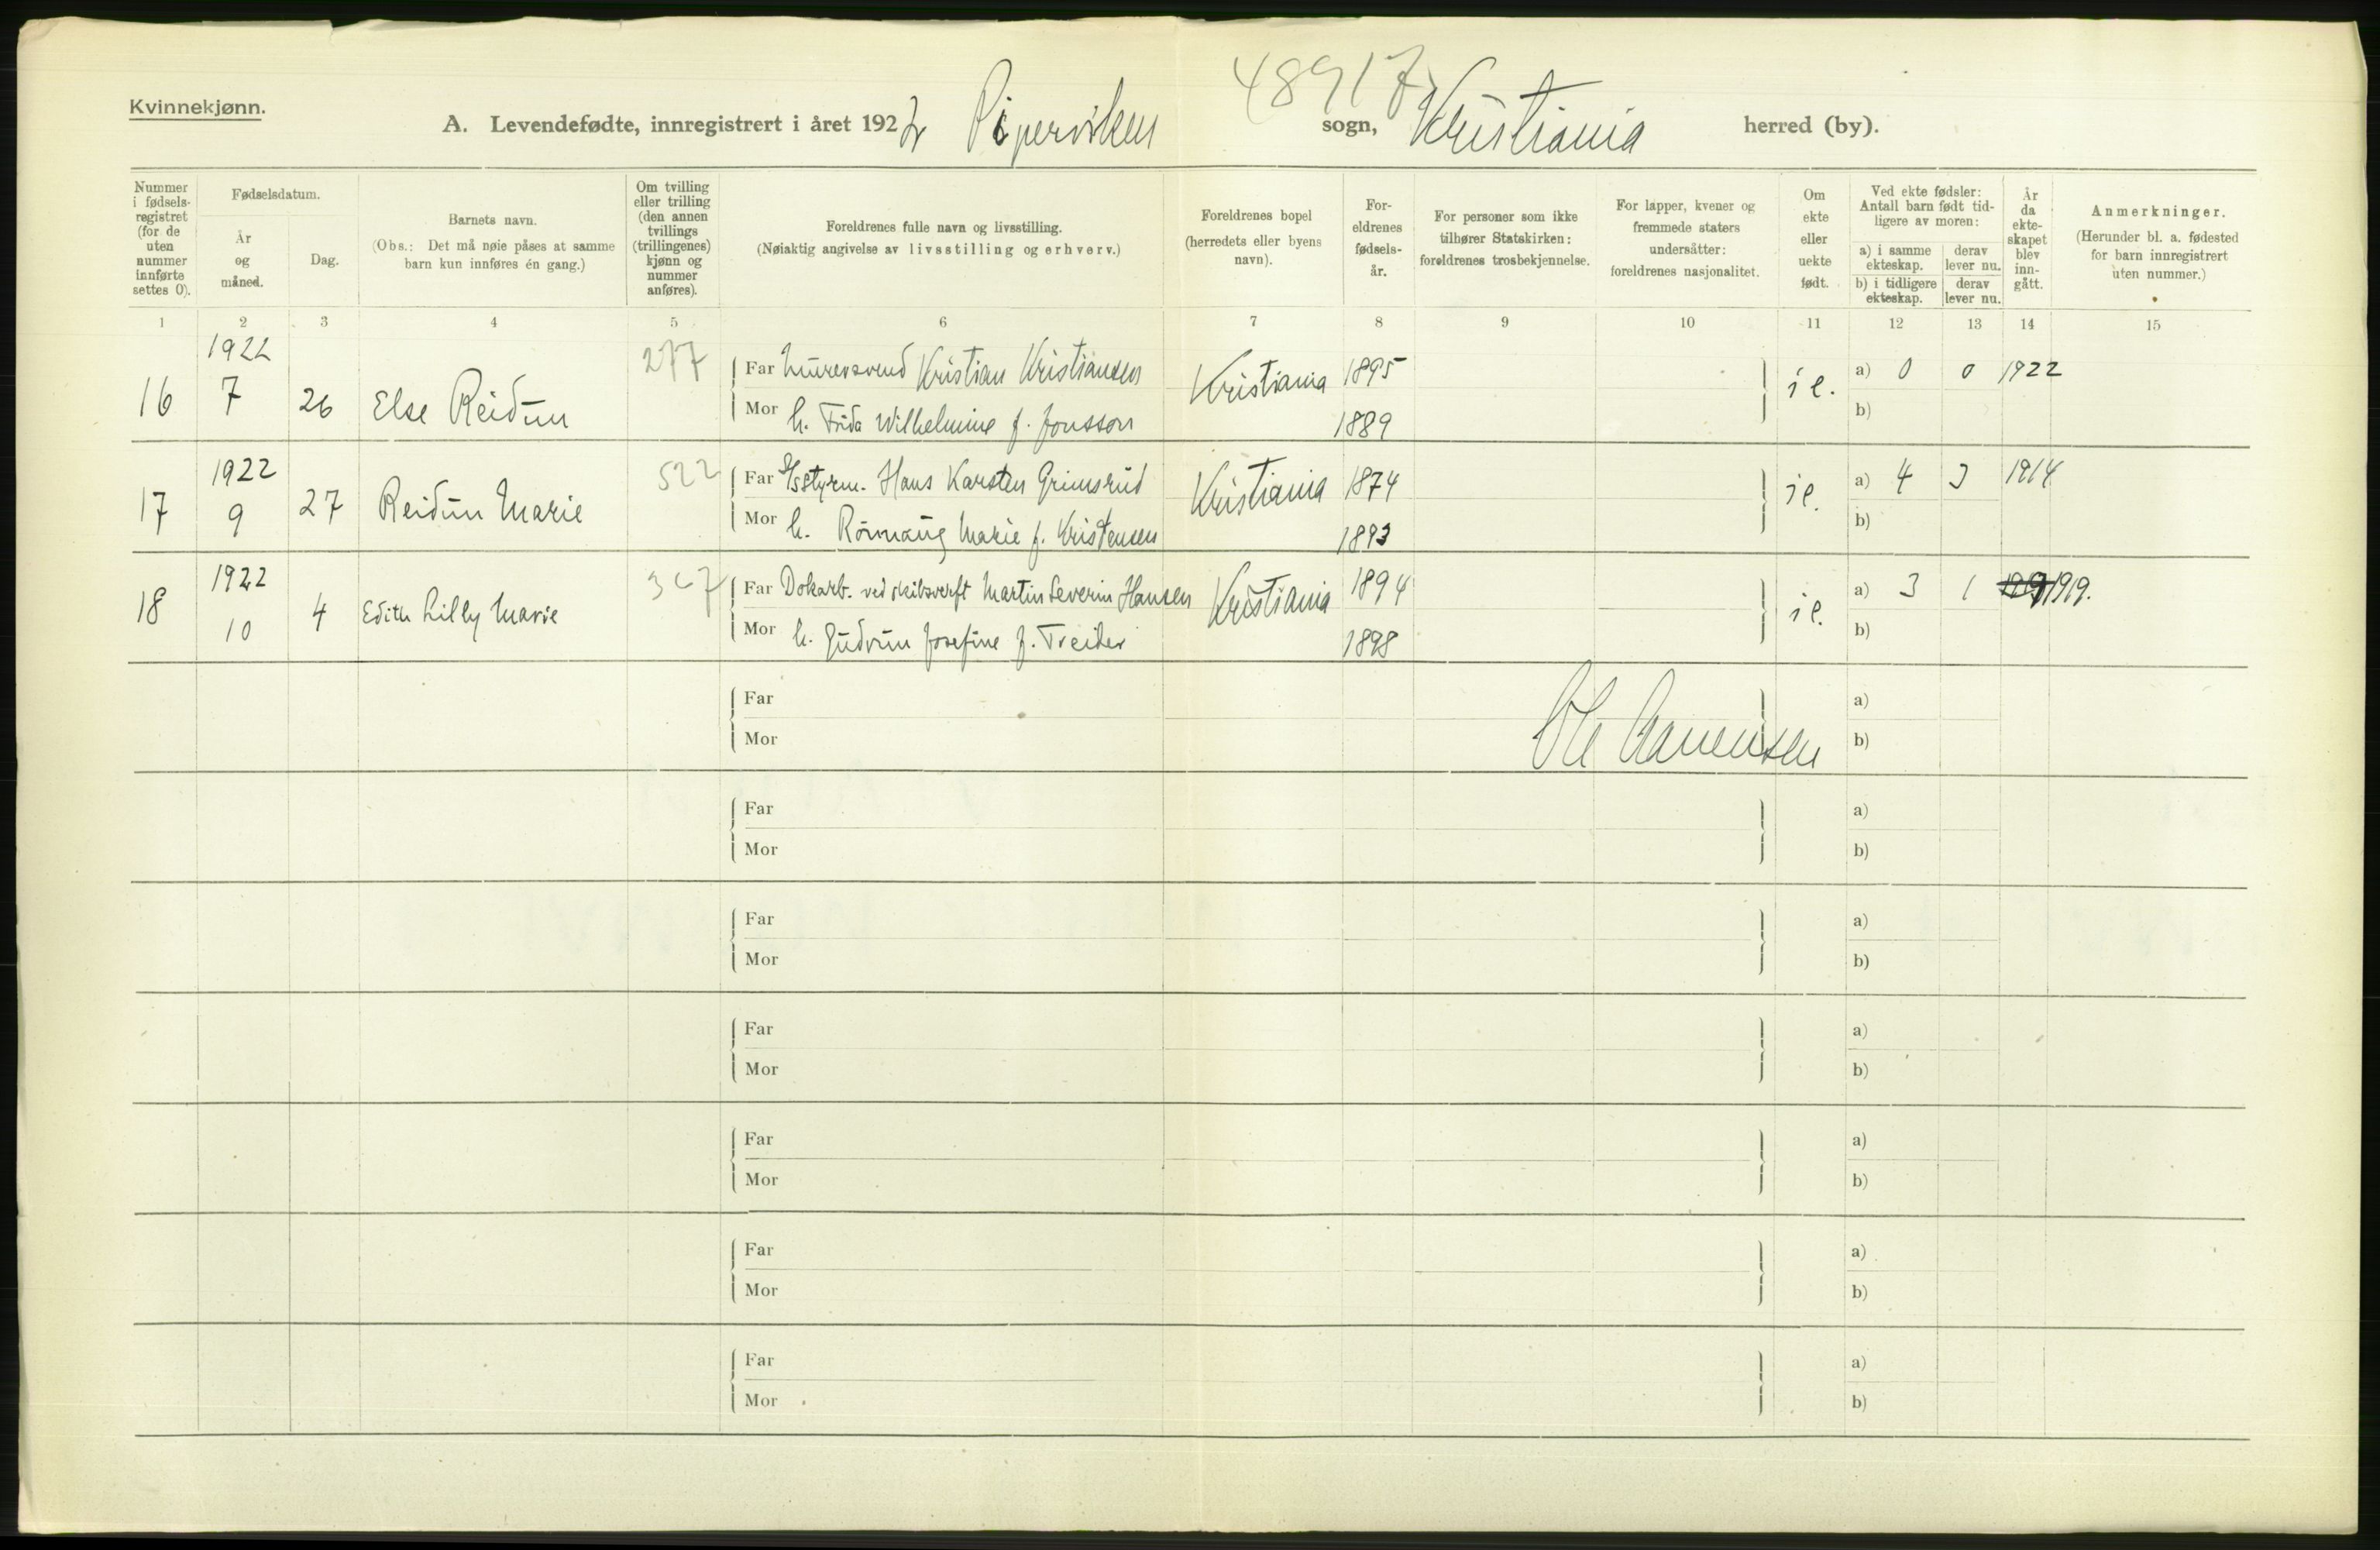 48917
Kvinnekjønn.
A. Levendefødte, innregistrert i året 1922 Pipervikens sogn, Kristiania herred (by).
Nummer i fødsels- registret (for de uten nummer innførte settes 0).
Fødselsdatum.
År og måned.
Dag.
Barnets navn.
(Obs.: Det må nøie påses at samme barn kun innføres én gang.)
Om tvilling eller trilling (den annen tvillings (trillingenes) kjønn og nummer anføres).
Foreldrenes fulle navn og livsstilling.
(Nøiaktig angivelse av livsstilling og erhverv.)
Foreldrenes bopel (herredets eller byens navn).
For- eldrenes fødsels- år.
For personer som ikke tilhører Statskirken: foreldrenes trosbekjennelse.
For lapper, kvener og fremmede staters undersåtter: foreldrenes nasjonalitet.
Om ekte eller uekte født.
Ved ekte fødsler: Antall barn født tid- ligere av moren:
a) i samme ekteskap.
derav lever nu.
b) i tidligere ekteskap.
derav lever nu.
År da ekte- skapet blev inn- gått.
Anmerkninger.
(Herunder bl. a. fødested for barn innregistrert uten nummer.)
1 2 3 4 5 6 7 8 9 10 11 12 13 14 15
16 1922 7 26 Else Reidun 277 Far Murersvend Kristian Kristiansen Kristiania 1895 ie. a) 0 0 1922
Mor h. Frida Wilhelmine f. Jonsson 1889 b)
17 1922 9 27 Reidun Marie 522 Far Hans Karsten Grimsrud Kristiania 1874 ie. a) 4 3 1914
Mor h. Marie f. Kristensen 1893 b)
18 1922 10 4 Edith Lilly Marie 367 Far Dokarb. ved skibsverft Martin Severin Hansen Kristiania 1894 ie. a) 3 1 1919.
Mor h. Gudrun Josefine f. Treider 1898 b)
Far a)
Mor b)
Far a)
Mor b)
Far a)
Mor b)
Far a)
Mor b)
Far a)
Mor b)
Far a)
Mor b)
Far a)
Mor b)